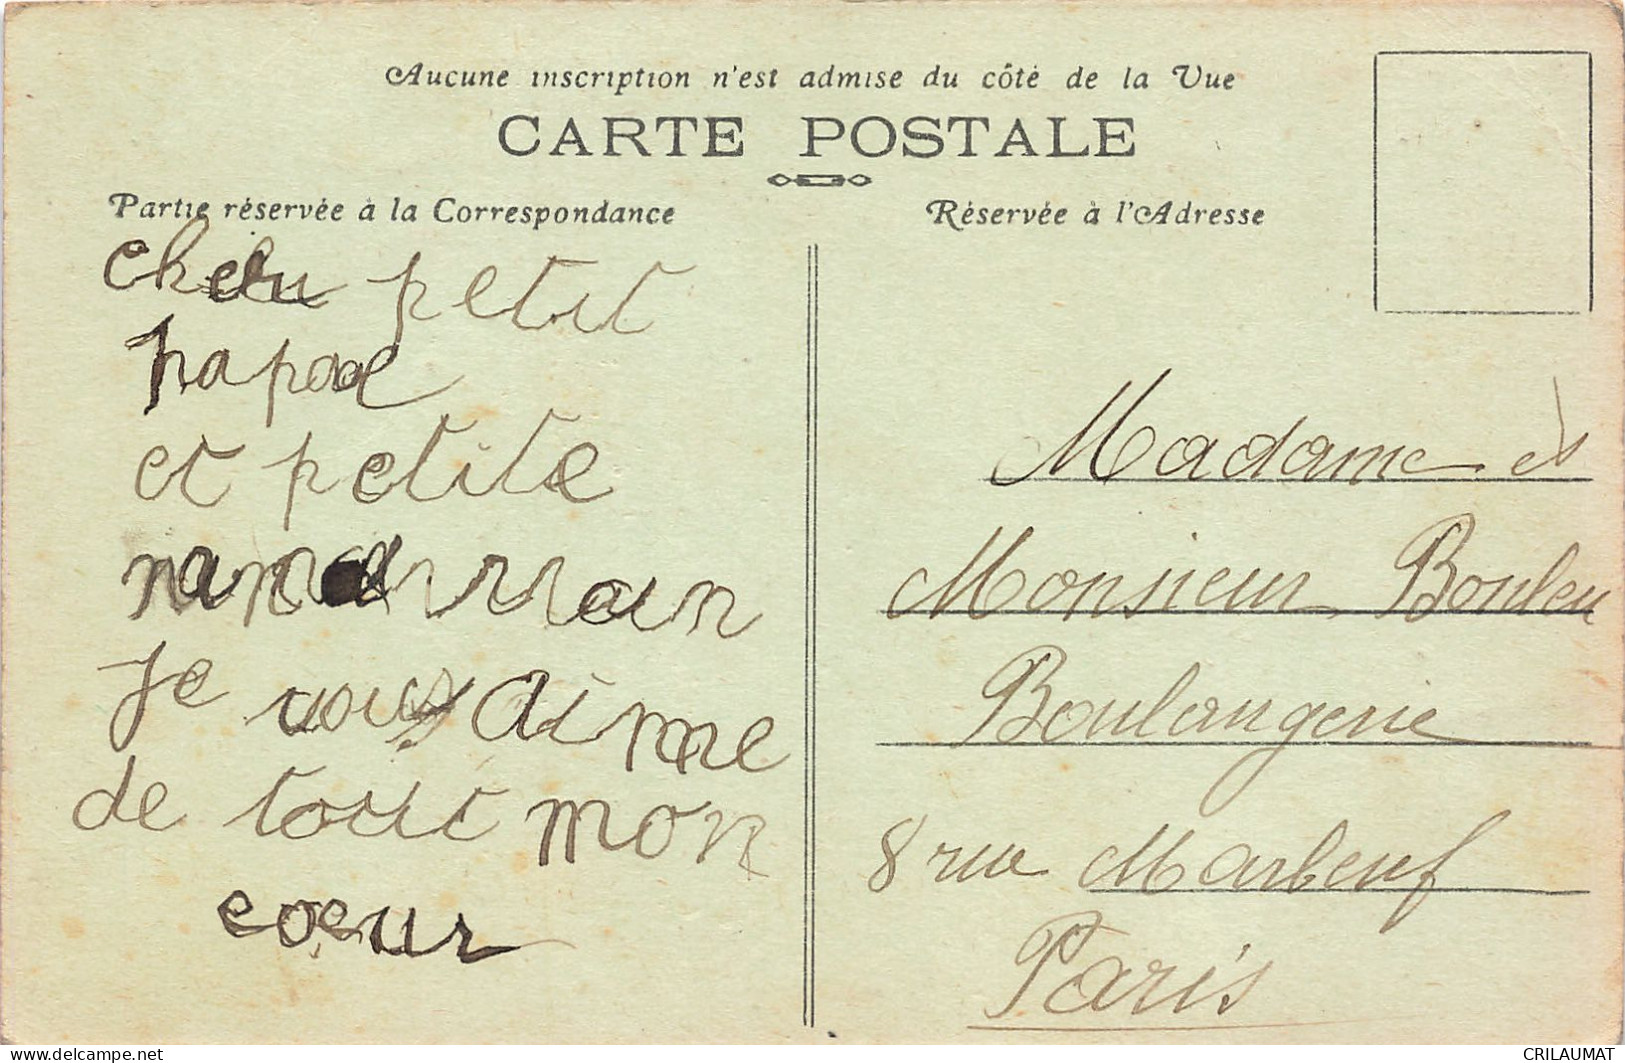 Aucune inscription n'est admise du côté de la Vue
CARTE POSTALE
Partie réservée à la Correspondance
Réservée à l'Adresse
petit
et petite
Je vous aime
de tout mon
coeur
Madame et
Monsieur Bouleu
Boulangerie
8 rue Marbeuf
Paris
www.delcampe.net
CRILAUMAT